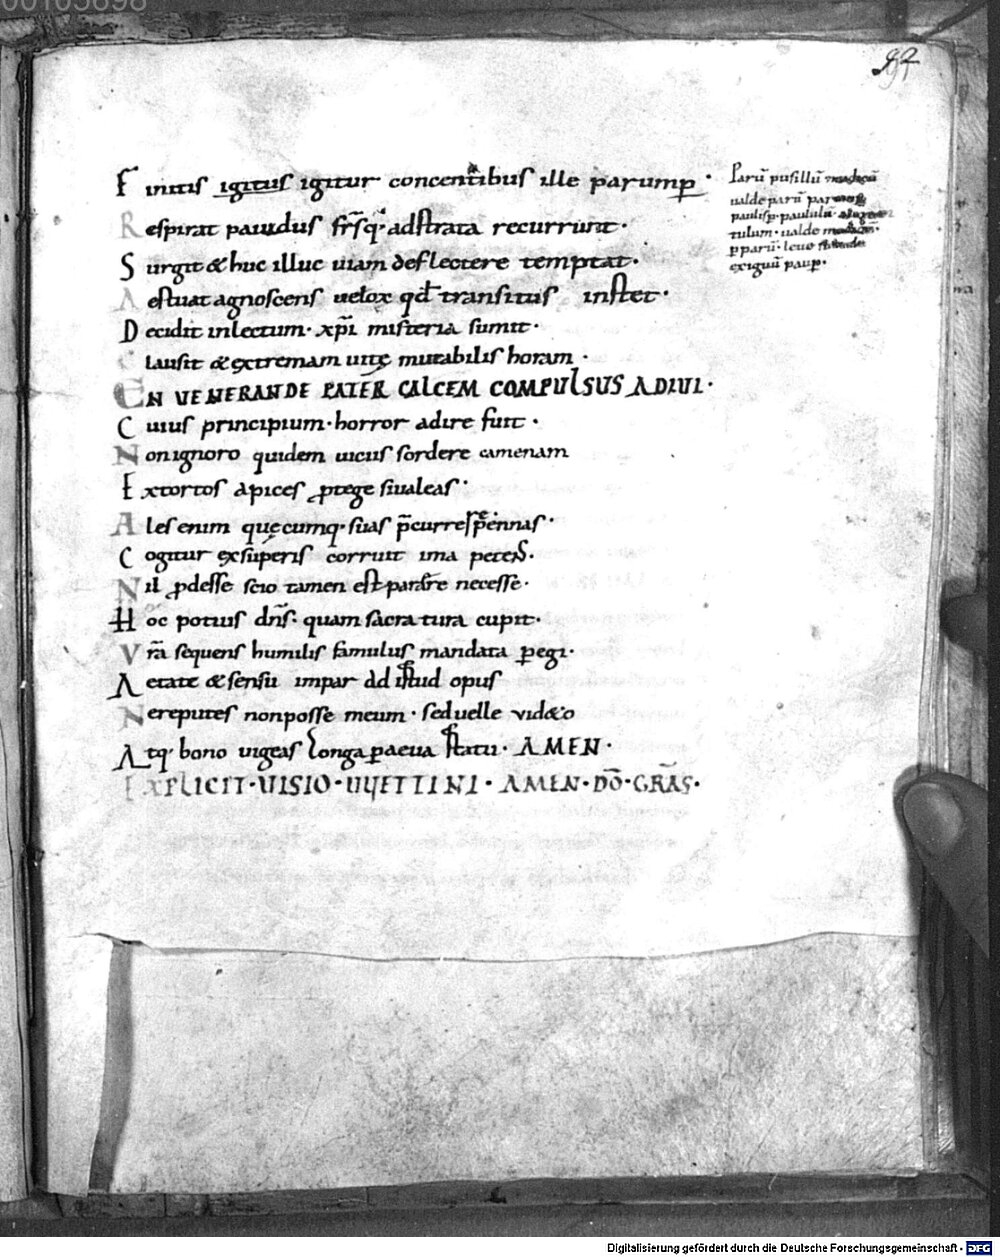 00105698
97
Finitis igitus igitur concentibus ille parump̄·
Respirat pauidus fr̄sq; adstrata recurrunt·
Surgit & huc illuc uiam deflectere temptat·
Aestuat agnoscens uelox qđ transitus instet·
Decidit inlectum· xp̄i misteria sumit·
Clausit & extremam uitę mutabilis horam·
EN VENERANDE PATER CALCEM COMPULSUS ADIUI·
Cuius principium· horror adire fuit·
Nonignoro quidem uicus sordere camenam
Extortos apices ꝓtege siualeas·
Ales enim quęcumq· suas p̄curres p̄ennas·
Cogitur exsuperis corruit ima petens·
Nil ꝓdesse scio tamen est parere necesse·
Hoc potius dn̄s· quam sacra tura cupit·
Vr̄a sequens humilis famulus mandata peregi·
Aetate & sensu impar ad istud opus
Nereputes nonposse meum· seduelle uid&o
Atq· bono uigeas longa ꝑaeua statu· AMEN·
EXPLICIT· VISIO· UUETTINI· AMEN· DŌ· GRĀS·
Parū pusillū
ualde parū
paulisp· paululū
tulum· ualde
ꝑparū· leue
exiguū paup·
Digitalisierung gefördert durch die Deutsche Forschungsgemeinschaft - DFG